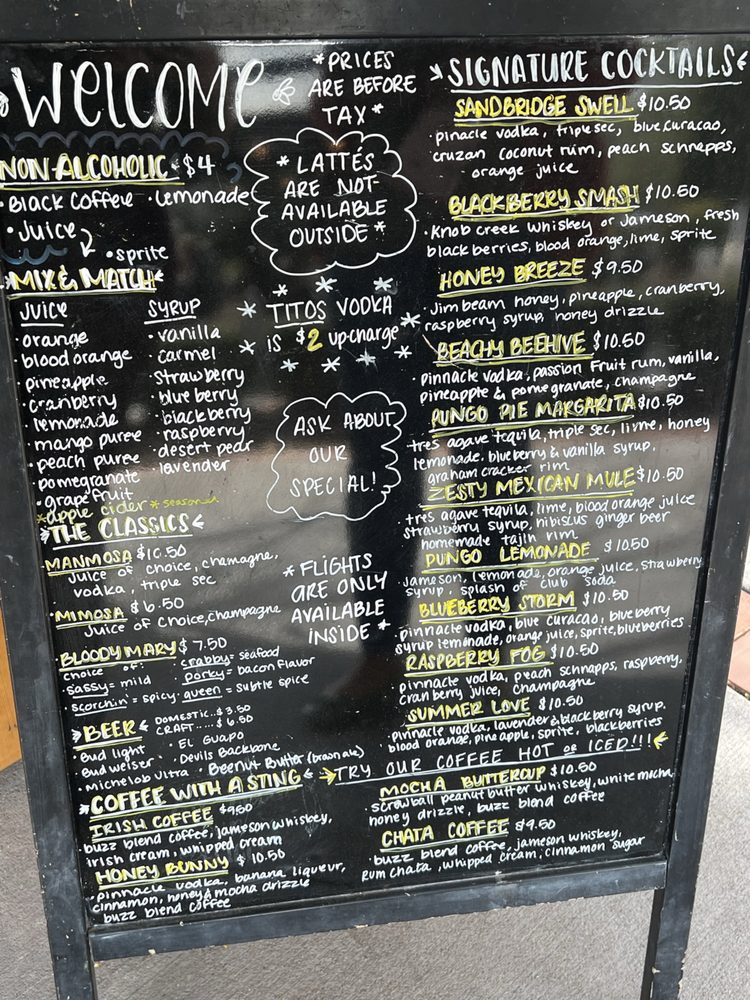 WELCOME
*PRICES
ARE BEFORE
TAX*
NON-ALCOHOLIC-$4
• Black Coffee • Lemonade
• Juice
• sprite
MIX & MATCH
JUICE
• orange
• blood orange
• pineapple
• cranberry
• lemonade
• mango puree
• peach puree
• pomegranate
• grapefruit
*apple cider *seasonal
SYRUP
• vanilla
• carmel
• strawberry
• blueberry
• blackberry
• raspberry
• desert pear
• lavender
* LATTÉS
ARE NOT
AVAILABLE
OUTSIDE *
TITOS VODKA
is $2 upcharge
ASK ABOUT
OUR
SPECIAL!
* FLIGHTS
are only
AVAILABLE
INSIDE *
THE CLASSICS
MANMOSA $10.50
Juice of choice, chamagne,
vodka, triple sec
• MIMOSA $6.50
Juice of choice, champagne
• BLOODY MARY $7.50
choice of:
sassy = mild
scorchin' = spicy
crabby = seafood
porky = bacon flavor
queen = subtle spice
BEER
DOMESTIC..$3.50
CRAFT.....$6.50
• Bud light
• Budweiser
• Michelob Ultra
• EL Guapo
• Devils Backbone
• Beenut Butter (brown ale)
COFFEE WITH A STING
IRISH COFFEE $9.50
buzz blend coffee, jameson whiskey,
irish cream, whipped cream
HONEY BUNNY $10.50
• pinnacle vodka, banana liqueur,
cinnamon, honey & mocha drizzle
buzz blend coffee
SIGNATURE COCKTAILS
SANDBRIDGE SWELL $10.50
• pinacle vodka, triple sec, blue curacao,
cruzan coconut rum, peach schnapps,
orange juice
BLACKBERRY SMASH $10.50
• Knob creek whiskey or Jameson, fresh
blackberries, blood orange, lime, sprite
HONEY BREEZE $9.50
• Jim beam honey, pineapple, cranberry,
raspberry syrup, honey drizzle
BEACHY BEEHIVE $10.50
• pinnacle vodka, passion fruit rum, vanilla,
pineapple & pomegranate, champagne
PUNGO PIE MARGARITA $10.50
tres agave tequila, triple sec, lime, honey
lemonade, blueberry & vanilla syrup,
graham cracker rim
ZESTY MEXICAN MULE $10.50
• tres agave tequila, lime, blood orange juice
strawberry syrup, hibiscus ginger beer
homemade tajin rim
PUNGO LEMONADE $10.50
• Jameson, lemonade, orange juice, strawberry
syrup, splash of club soda
BLUEBERRY STORM $10.50
• pinnacle vodka, blue curacao, blueberry
syrup lemonade, orange juice, sprite, blueberries
RASPBERRY FOG $10.50
pinnacle vodka, peach schnapps, raspberry,
cranberry juice, champagne
SUMMER LOVE $10.50
• pinnacle vodka, lavender & blackberry syrup,
blood orange, pineapple, sprite, blackberries
TRY OUR COFFEE HOT or ICED!!!
MOCHA BUTTERCUP $10.50
• screwball peanut butter whiskey, white mocha
honey drizzle, buzz blend coffee
CHATA COFFEE $9.50
• buzz blend coffee, jameson whiskey,
Rum chata, whipped cream, cinnamon sugar